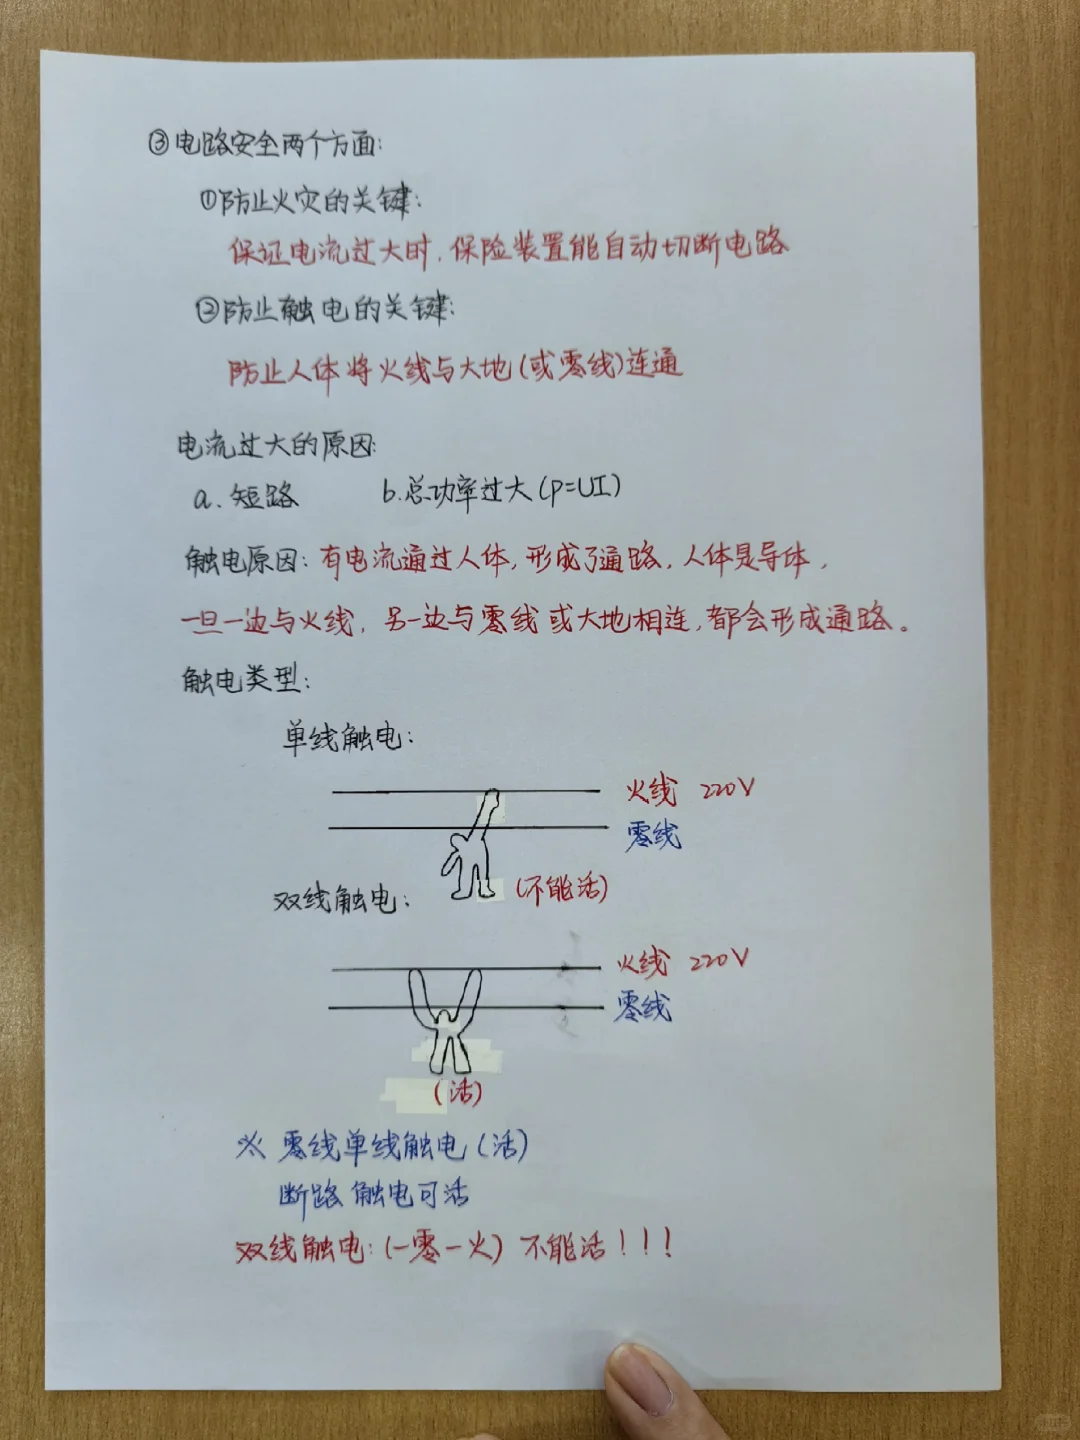 ③电路安全两个方面:
①防止火灾的关键:
保证电流过大时,保险装置能自动切断电路
②防止触电的关键:
防止人体将火线与大地(或零线)连通
电流过大的原因:
a.短路 b.总功率过大(P=UI)
触电原因:有电流通过人体,形成了通路,人体是导体,
一旦一边与火线,另一边与零线或大地相连,都会形成通路。
触电类型:
单线触电:
火线 220V
零线
(不能活)
双线触电:
火线 220V
零线
(活)
※ 零线单线触电(活)
断路触电可活
双线触电:(一零一火)不能活!!!